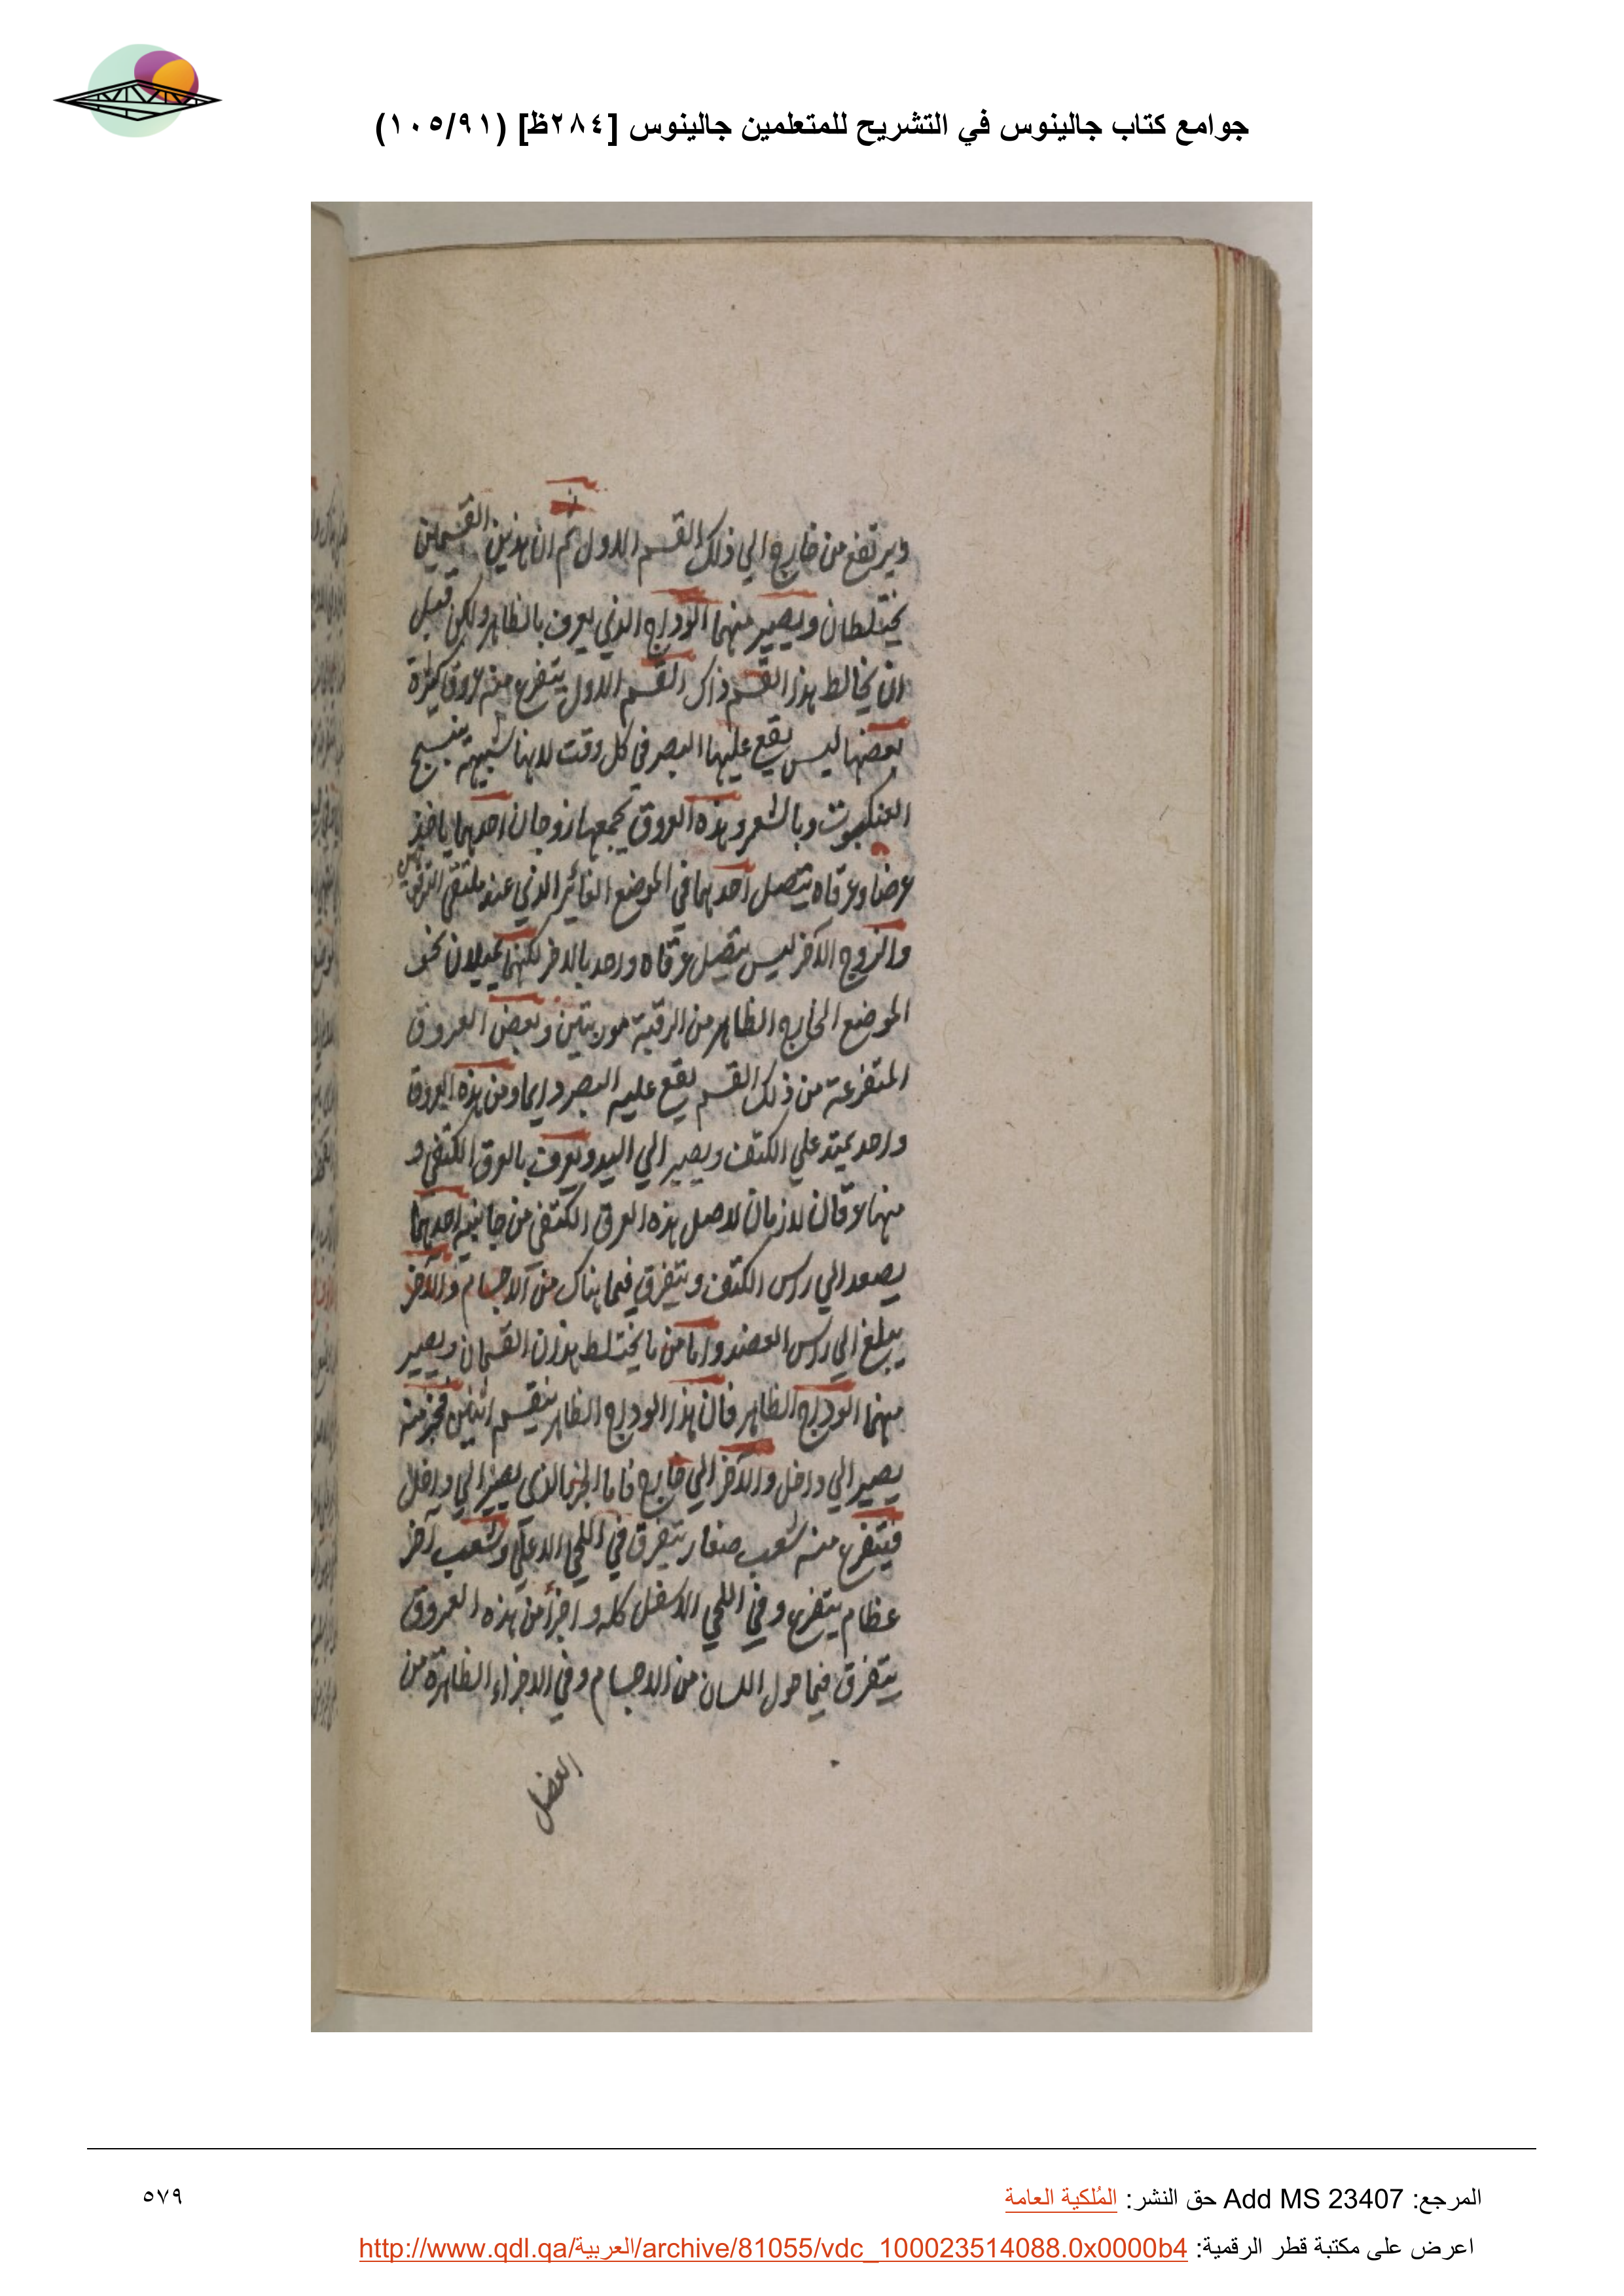 جوامع كتاب جالينوس في التشريح للمتعلمين جالينوس [٢٨٤ظ] (١٠٥/٩١)
ويرتفع من خارج الي ذلك القسم الاول ثم ان هذين القسمين
يختلطان ويصير منهما الوداج الذي يعرف بالظاهر ولكن قبل
ان يخالط هذا القسم ذاك القسم الاول يتفرع منه عروق كثيرة
بعضها ليس يقع عليها البصر في كل وقت لانها شبيهة بنسج
العنكبوت وبالشعر وهذه العروق يجمعها زوجان احدهما ياخذ
عرضا وعرقاه يتصل احدهما في الموضع الغائر الذي عند ملتقى الترقوتين
والزوج الآخر ليس يتصل عرقاه واحد بالاخر لكنهما يميلان نحو
الموضع الخارج الظاهر من الرقبة موربتين وبعض العروق
المتفرعة من ذلك القسم يقع عليه البصر دايما ومن هذه العروق
واحد يمتد علي الكتف ويصير الي اليد ويعرف بالعرق الكتفي و
منها عرقان لازمان لاصل هذه العرق الكتفي من جانبيه احدهما
يصعد الي راس الكتف ويتفرق فيما هناك من الاجسام والآخر
يبلغ الي راس العضد واما من ما يختلط هذان القسمان ويصير
منهما الوداج الظاهر فان هذا الوداج الظاهر ينقسم اثنين فجزء منه
يصير الي داخل والآخر الي خارج فاما الجزء الذي يصير الي داخل
فيتفرع منه شعب صغار يتفرق في اللحي الاعلي وشعب آخر
عظام يتفرع وفي اللحي الاسفل كله واجزأ من هذه العروق
يتفرق فيما حول اللسان من الاجسام وفي الاجزاء الظاهرة من
العضل
المرجع: Add MS 23407 حق النشر: المُلكية العامة
٥٧٩
اعرض على مكتبة قطر الرقمية: http://www.qdl.qa/العربية/archive/81055/vdc_100023514088.0x0000b4